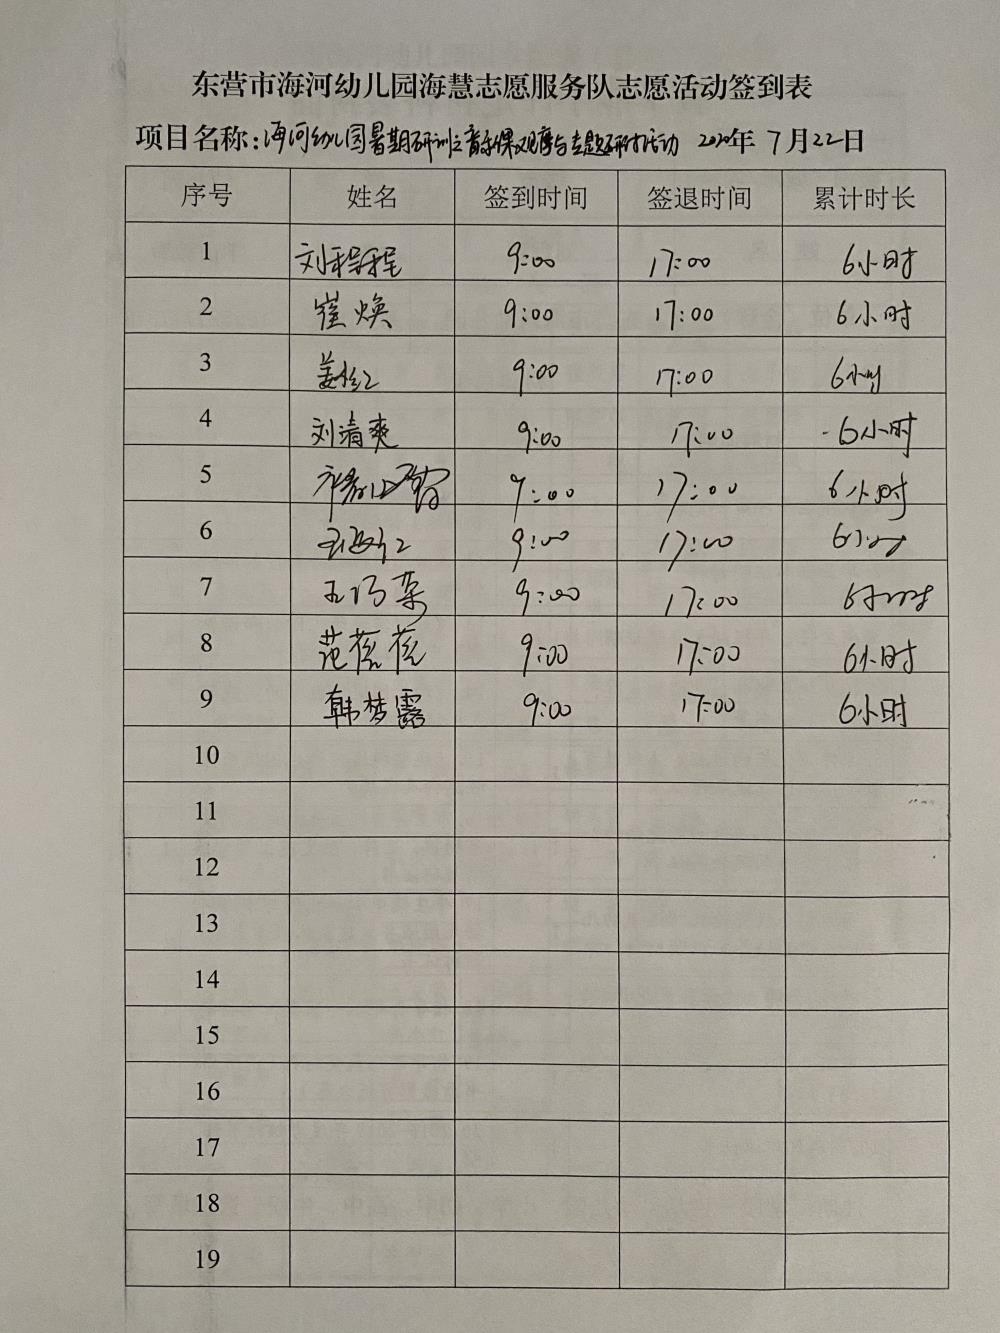 东营市海河幼儿园海慧志愿服务队志愿活动签到表
项目名称:海河幼儿园暑期研训之音乐课观摩与主题研讨活动 2020年 7月22日
序号 姓名 签到时间 签退时间 累计时长
1 刘程程 9:00 17:00 6小时
2 崔焕 9:00 17:00 6小时
3 姜红 9:00 17:00 6小时
4 刘清爽 9:00 17:00 6小时
5 9:00 17:00 6小时
6 9:00 17:00 6小时
7 王巧荣 9:00 17:00 6小时
8 范蕊蕊 9:00 17:00 6小时
9 韩梦露 9:00 17:00 6小时
10
11
12
13
14
15
16
17
18
19